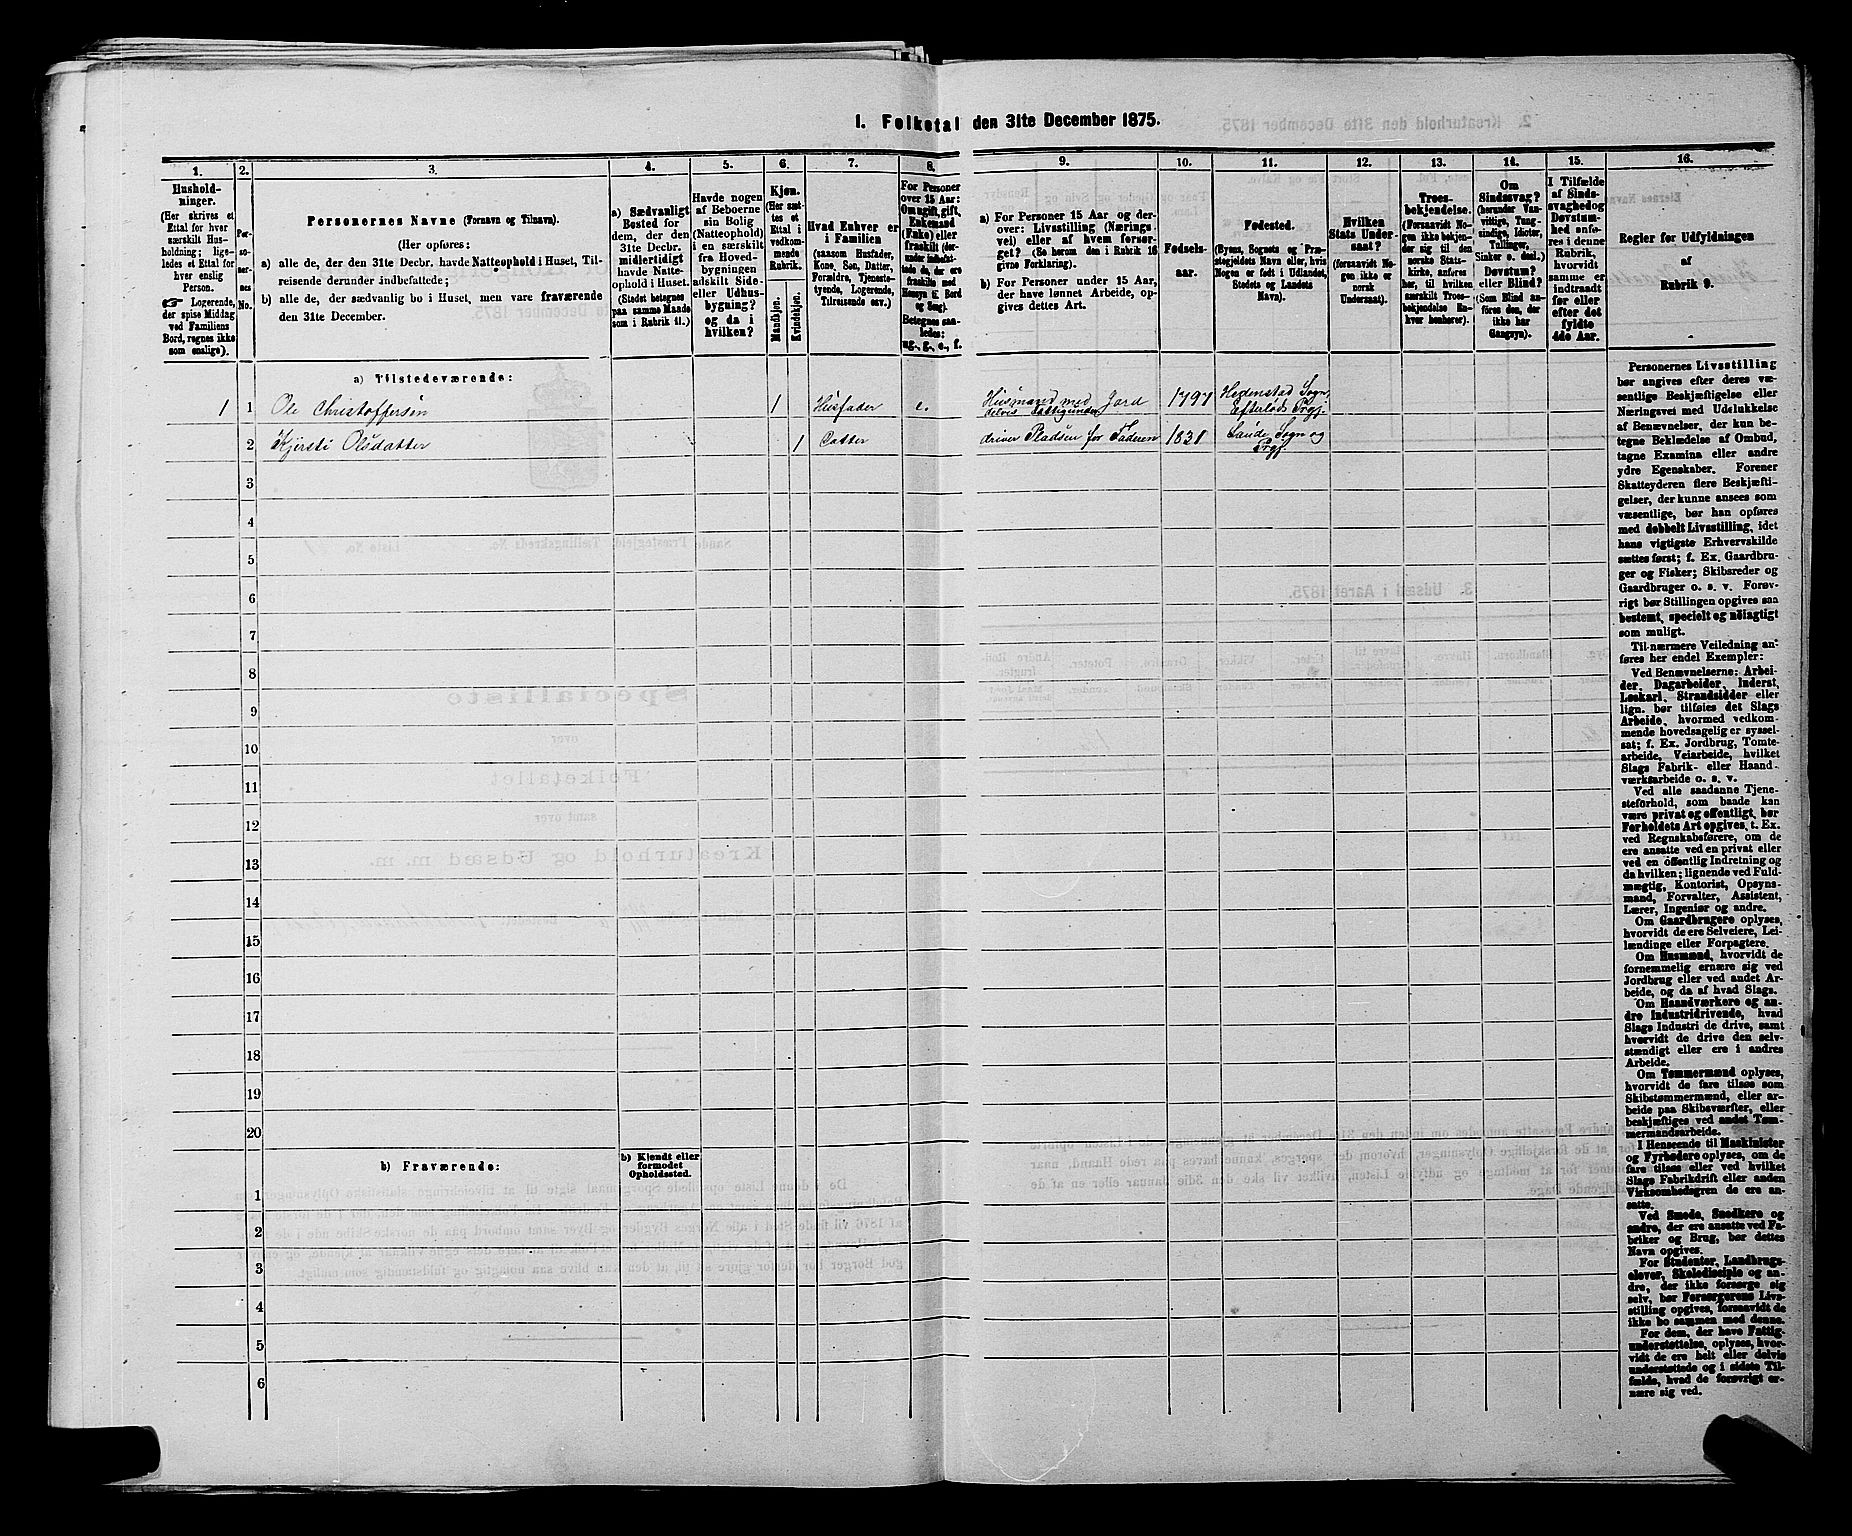 1. Folketal den 31te December 1875.
1.
2.
3.
4.
5.
6.
7.
8.
9.
10.
11.
12.
13.
14.
15.
16.
Hushold-
ninger.
(Her skrives et
Ettal for hver
særskilt Hus-
holdning; lige-
ledes et Ettal for
hver enslig
Person.
Logerende,
der spise Middag
ved Familiens
Bord, regnes ikke
som enslige).
Per-
so-
ner-
nes
No.
Personernes Navne (Fornavn og Tilnavn).
(Her opføres:
a) alle de, der den 31te Decbr. havde Natteophold i Huset, Til-
reisende derunder indbefattede;
b) alle de, der sædvanlig bo i Huset, men vare fraværende
den 31te December.
a) Sædvanligt
Bosted for
dem, der den
31te Decbr.
midlertidigt
havde Natte-
ophold i Huset.
(Stedet betegnes
paa samme Maade
som i Rubrik 11.)
Havde nogen
af Beboerne
sin Bolig
(Natteophold)
i en særskilt
fra Hoved-
bygningen
adskilt Side-
eller Udhus-
bygning?
og da i
hvilken?
Kjøn.
(Her sæt-
tes et
Ettal i
vedkom-
mende
Rubrik.
Mandkjøn.
Kvindekjøn.
Hvad Enhver er
i Familien
(saasom Husfader,
Kone, Søn, Datter,
Forældre, Tjeneste-
tyende, Logerende,
Tilreisende osv.)
For Personer
over 15 Aar:
Om ugift, gift,
Enkemand
(Enke) eller
fraskilt (der-
under indbefat-
tede de, der ere
fraskilt med
Hensyn til Bord
og Seng).
Betegnes saa-
ledes:
ug., g., e., f.
a) For Personer 15 Aar og der-
over: Livsstilling (Nærings-
vei) eller af hvem forsør-
get? (Se herom den i Rubrik 16
givne Forklaring).
b) For Personer under 15 Aar,
der have lønnet Arbeide, op-
gives dettes Art.
Fødsels-
aar.
Fødested.
(Byens, Sognets og Præ-
stegjeldets Navn eller, hvis
Nogen er født i Udlandet,
Stedets og Landets
Navn).
Hvilken
Stats Under-
saat?
(forsaavidt No-
gen ikke er
norsk
Undersaat).
Troes-
bekjendelse.
(Forsaavidt No-
gen ikke bekjen-
der sig til den
norske Stats-
kirke, anføres
her, til hvilken
særskilt Troes-
bekjendelse En-
hver henhører).
Om
Sindssvag?
(herunder Van-
vittige, Tung-
sindige, Idioter,
Tullinger,
Sinker o. desl.)
Døvstum?
eller Blind?
(Som Blind an-
føres den, der
ikke har
Gangsyn).
I Tilfælde
af Sinds-
svaghed og
Døvstum-
hed anfø-
res i denne
Rubrik,
hvorvidt
samme er
indtraadt
før eller
efter det
fyldte
4de Aar.
Regler for Udfyldningen
af
Rubrik 9.
a) Tilstedeværende:
1 1 Ole Christoffersøn 1 Husfader e. Husmand med Jord 1797 Hedenstad Sogn,
delvis Fattigunder. Efterløds Prgj.
2 Kjersti Olsdatter 1 Datter driver Pladsen for Faderen 1831 Sande Sogn og
Prgj.
3
4
5
6
7
8
9
10
11
12
13
14
15
16
17
18
19
20
b) Fraværende:
b) Kjendt eller
formodet
Opholdssted.
1
2
3
4
5
6
Personernes Livsstilling
bør angives efter deres væ-
sentlige Beskjæftigelse eller
Næringsvei med Udelukkelse
af Benævnelser, der kun be-
tegne Beklædelse af Ombud,
tagne Examina eller andre
ydre Egenskaber. Forener
Skatteyderen flere Beskjæfti-
gelser, der kunne ansees som
væsentlige, bør han opføres
med dobbelt Livsstilling, idet
hans vigtigste Erhvervskilde
sættes først; f. Ex. Gaardbru-
ger og Fisker; Skibsreder og
Gaardbruger o. s. v. Forøv-
rigt bør Stillingen opgives saa
bestemt, specielt og nøiagtigt
som muligt.
Til nærmere Veiledning an-
føres her endel Exempler:
Ved Benævnelserne: Arbei-
der, Dagarbeider, Inderst,
Løskarl, Strandsidder eller
lign. bør tilføies det Slags
Arbeide, hvormed vedkom-
mende hovedsagelig er syssel-
sat; f. Ex. Jordbrug, Tomte-
arbeide, Veiarbeide, hvilket
Slags Fabrik- eller Haand-
værksarbeide o. s. v.
Ved alle saadanne Tjene-
steforhold, som baade kan
være privat og offentligt, bør
Forholdets Art opgives, t. Ex.
ved Regnskabsførere, om de
ere ansatte ved en privat eller
ved en offentlig Indretning og
da hvilken; lignende ved Fuld-
mægtig, Kontorist, Opsyns-
mand, Forvalter, Assistent,
Lærer, Ingeniør og andre.
Om Gaardbrugere oplyses,
hvorvidt de ere Selveiere, Lei-
lændinge eller Forpagtere.
Om Husmænd, hvorvidt de
fornemmelig ernære sig ved
Jordbrug eller ved andet Ar-
beide, og da af hvad Slags.
Om Haandværkere og an-
dre Industridrivende, hvad
Slags Industri de drive, samt
hvorvidt de drive den selv-
stændigt eller ere i andres
Arbeide.
Om Tømmermænd oplyses,
hvorvidt de fare tilsøs som
Skibstømmermænd, eller ar-
beide paa Skibsværfter, eller
beskjæftiges ved andet Tøm-
mermandsarbeide.
I Henseende til Maskinister
og Fyrbødere oplyses, om de
fare tilsøs eller ved hvilket
Slags Fabrikdrift eller anden
Virksomhedsgren de ere an-
satte.
Ved Smede, Snedkere og
andre, der ere ansatte ved Fa-
briker og Brug, bør dettes
Navn opgives.
For Studenter, Landbrugs-
elever, Skoledisciple og an-
dre, der ikke forsørge sig
selv, bør Forsørgerens Livs-
stilling opgives, forsaavidt de
ikke bo sammen med denne.
For dem, der have Fattig-
understøttelse, oplyses, hvor-
vidt de ere helt eller delvis
understøttede og i sidste Til-
fælde, hvad de forøvrigt er-
nære sig ved.